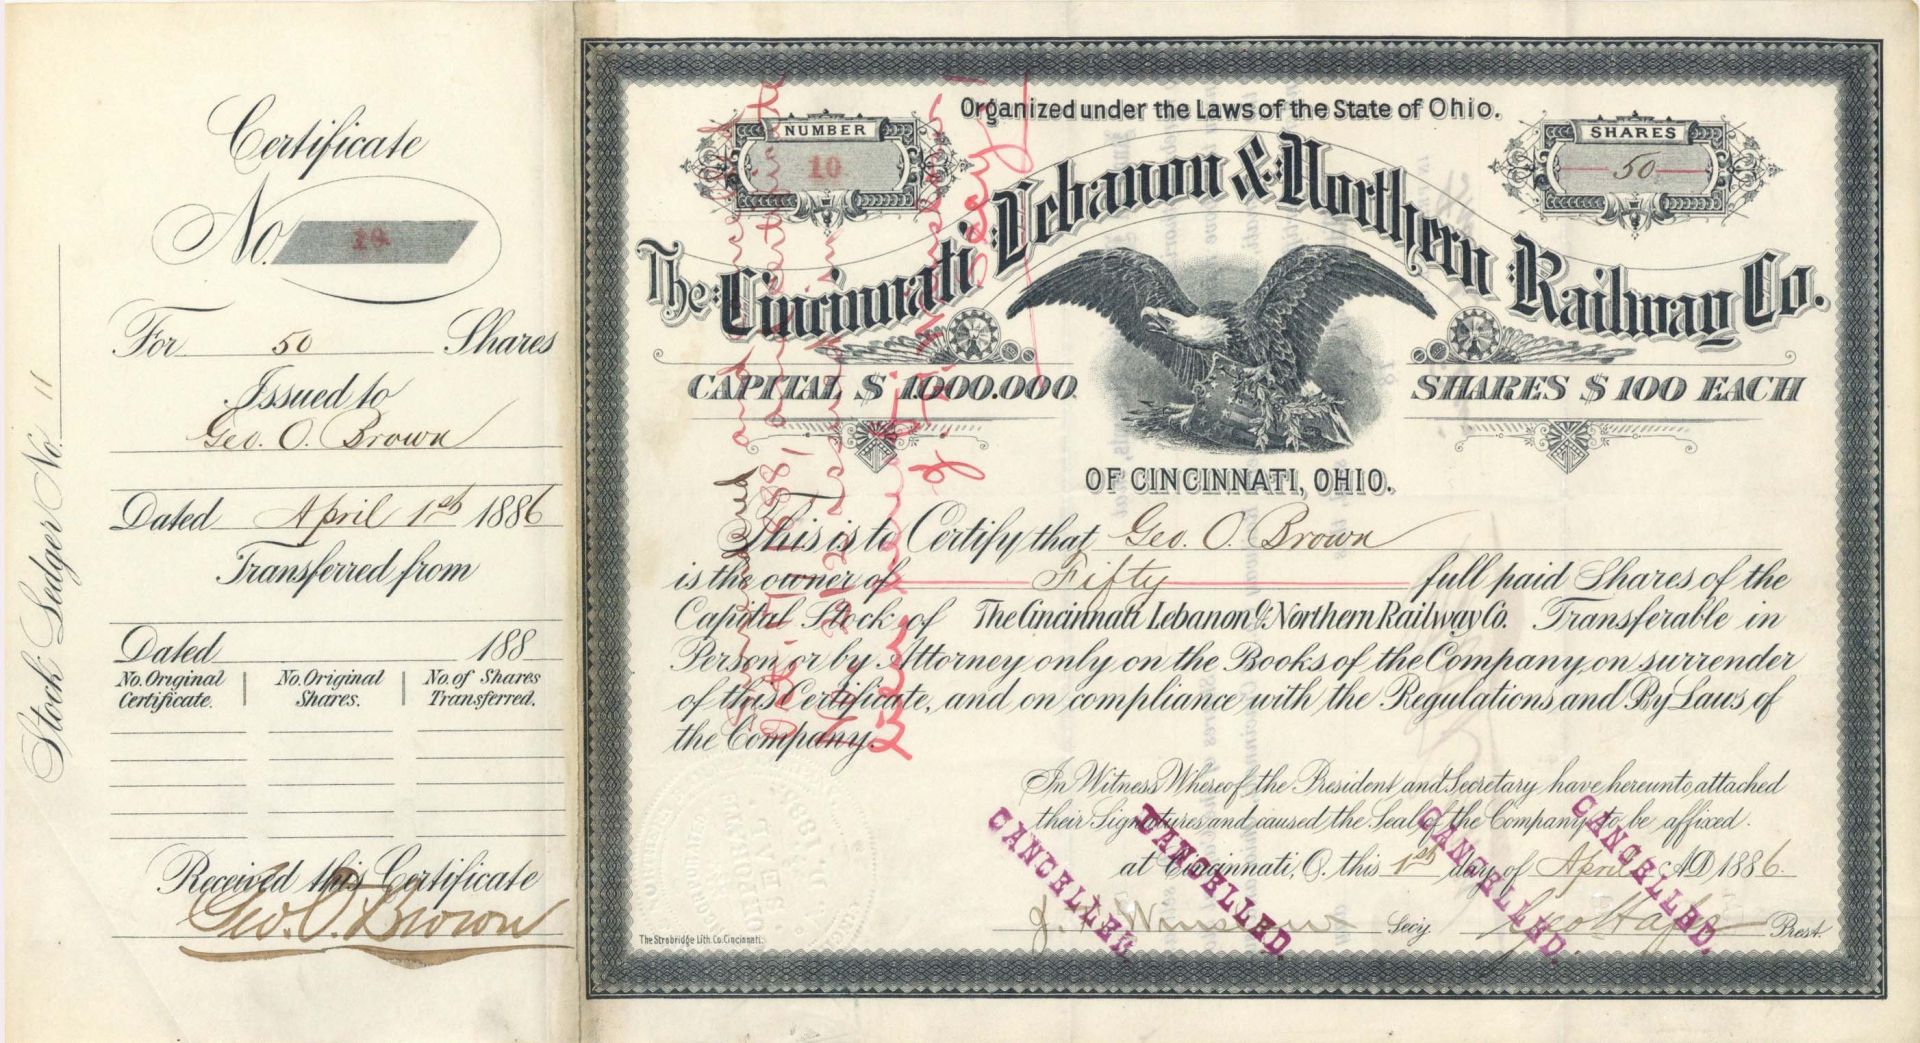 Certificate
No. 10
For 50 Shares
Issued to
Geo. O. Brown
Dated April 1st 1886
Transferred from
Dated 188
No. Original Certificate.
No. Original Shares.
No. of Shares Transferred.
Received this Certificate
Geo. O. Brown
Stock Ledger No. 11
Organized under the Laws of the State of Ohio.
NUMBER
10
SHARES
50
The Cincinnati Lebanon & Northern Railway Co.
CAPITAL $ 1.000.000.
SHARES $ 100 EACH
OF CINCINNATI, OHIO.
This is to Certify that Geo. O. Brown
is the owner of Fifty full paid Shares of the
Capital Stock of The Cincinnati Lebanon & Northern Railway Co. Transferable in
Person or by Attorney only on the Books of the Company, on surrender
of this Certificate, and on compliance with the Regulations and By Laws of
the Company.
In Witness Whereof the President and Secretary have hereunto attached
their Signatures and caused the Seal of the Company to be affixed.
at Cincinnati, O. this 1st day of April AD 1886.
J. Winslow Secy.
Geo Hafer Prest.
The Strobridge Lith. Co. Cincinnati.
CANCELLED.
CANCELLED
CANCELLED.
CANCELLED.
Surrendered and cancelled
and certificate
Secy